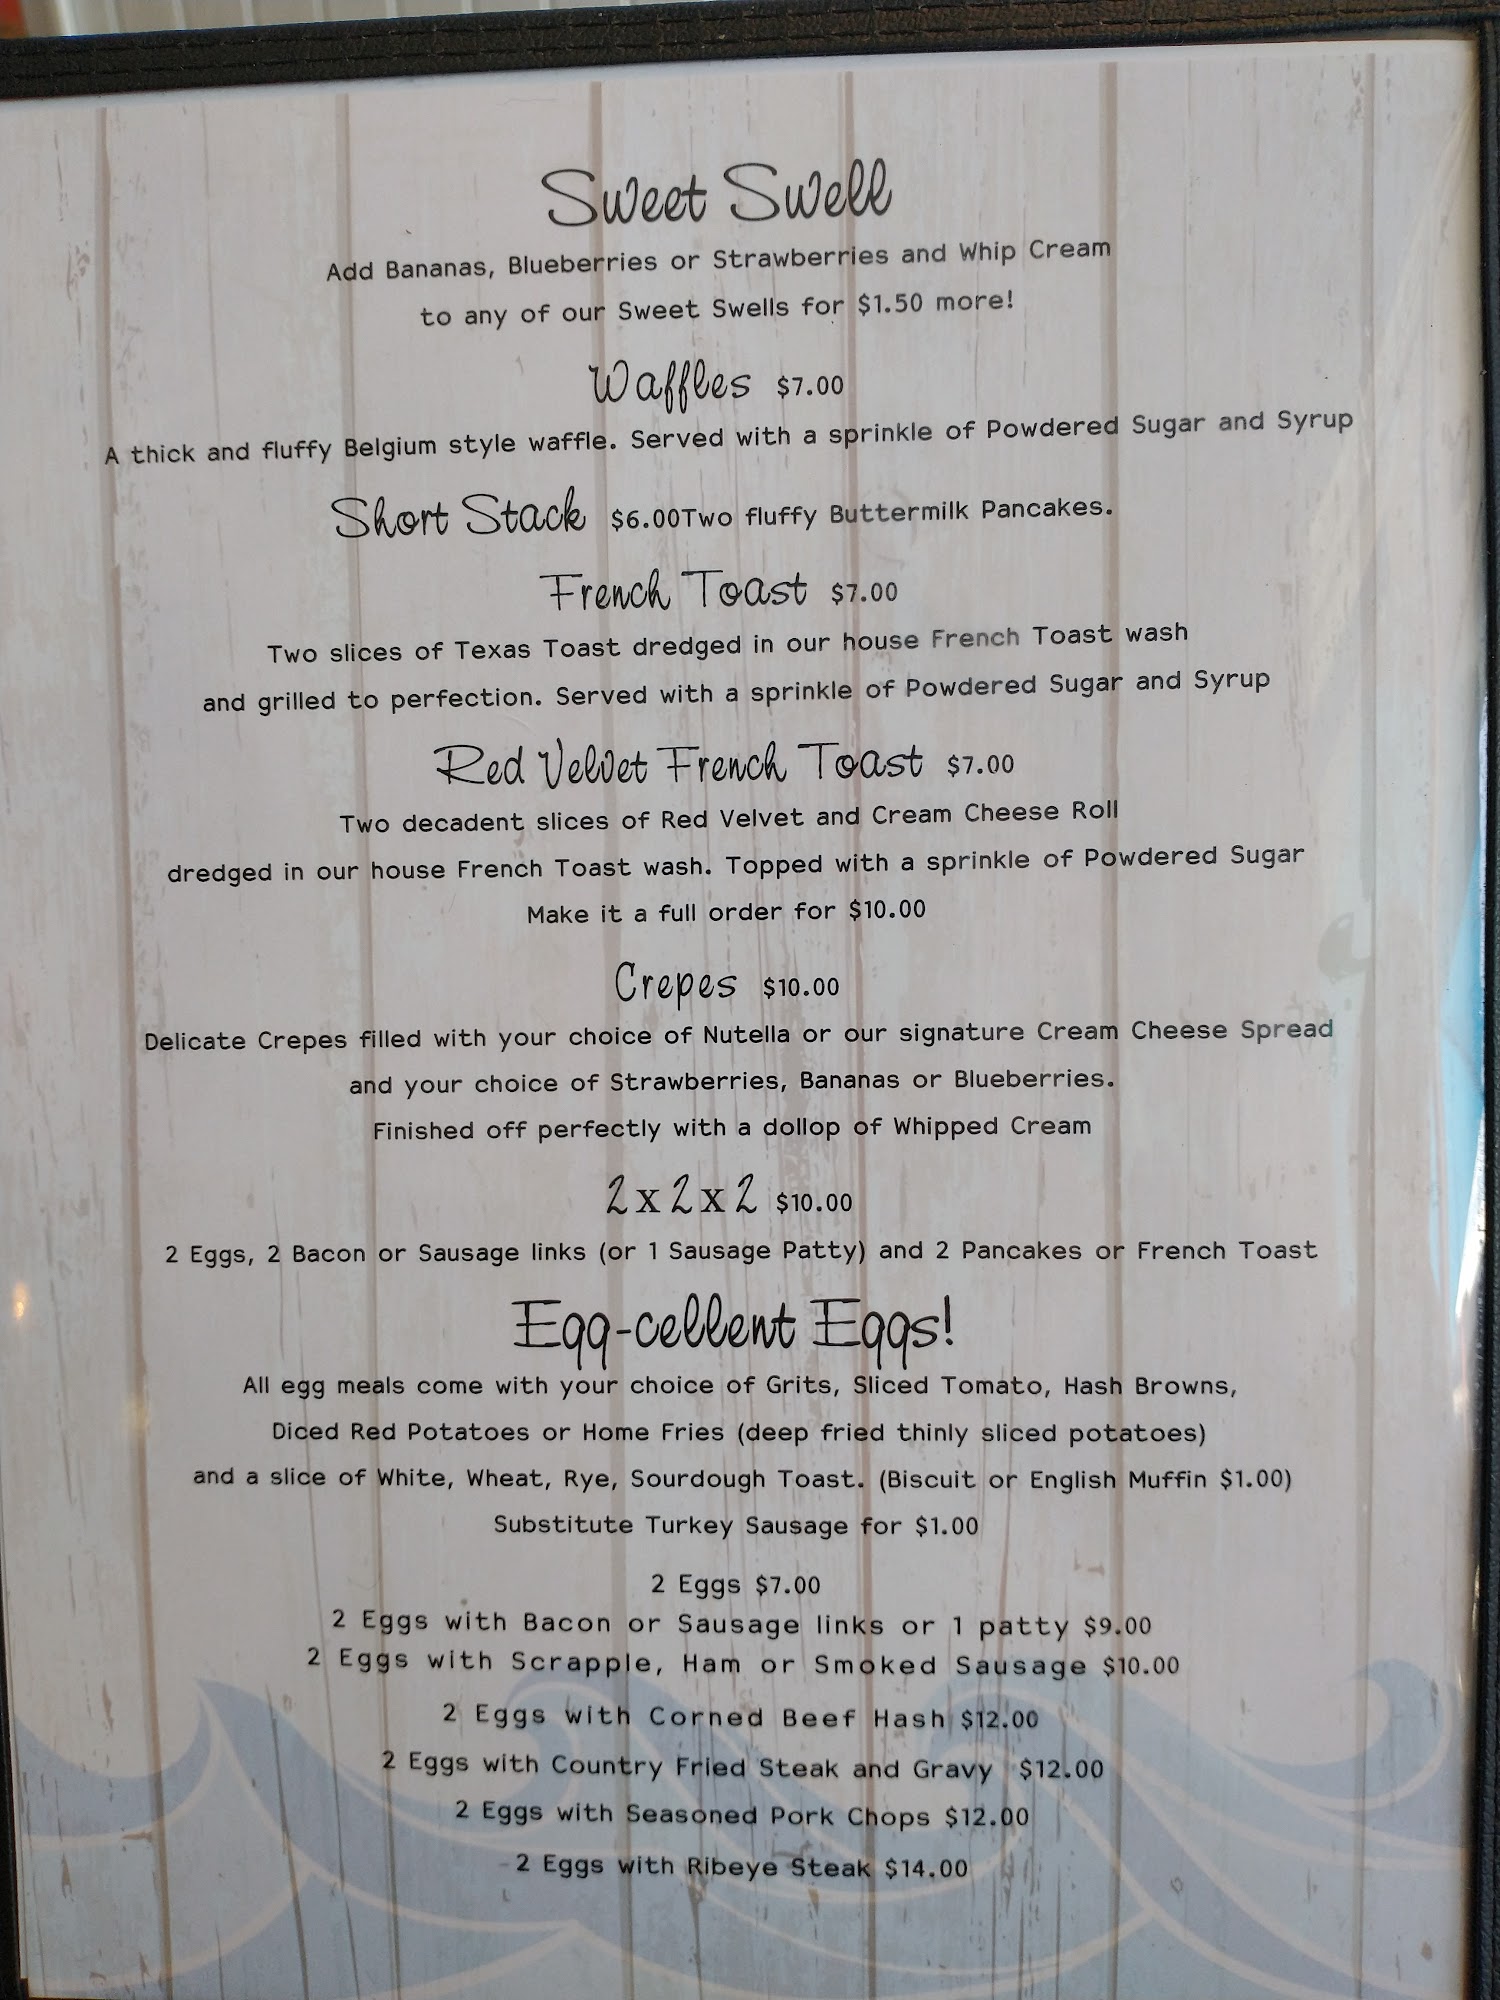 Sweet Swell
Add Bananas, Blueberries or Strawberries and Whip Cream
to any of our Sweet Swells for $1.50 more!
Waffles $7.00
A thick and fluffy Belgium style waffle. Served with a sprinkle of Powdered Sugar and Syrup
Short Stack $6.00Two fluffy Buttermilk Pancakes.
French Toast $7.00
Two slices of Texas Toast dredged in our house French Toast wash
and grilled to perfection. Served with a sprinkle of Powdered Sugar and Syrup
Red Velvet French Toast $7.00
Two decadent slices of Red Velvet and Cream Cheese Roll
dredged in our house French Toast wash. Topped with a sprinkle of Powdered Sugar
Make it a full order for $10.00
Crepes $10.00
Delicate Crepes filled with your choice of Nutella or our signature Cream Cheese Spread
and your choice of Strawberries, Bananas or Blueberries.
Finished off perfectly with a dollop of Whipped Cream
2x2x2 $10.00
2 Eggs, 2 Bacon or Sausage links (or 1 Sausage Patty) and 2 Pancakes or French Toast
Egg-cellent Eggs!
All egg meals come with your choice of Grits, Sliced Tomato, Hash Browns,
Diced Red Potatoes or Home Fries (deep fried thinly sliced potatoes)
and a slice of White, Wheat, Rye, Sourdough Toast. (Biscuit or English Muffin $1.00)
Substitute Turkey Sausage for $1.00
2 Eggs $7.00
2 Eggs with Bacon or Sausage links or 1 patty $9.00
2 Eggs with Scrapple, Ham or Smoked Sausage $10.00
2 Eggs with Corned Beef Hash $12.00
2 Eggs with Country Fried Steak and Gravy $12.00
2 Eggs with Seasoned Pork Chops $12.00
2 Eggs with Ribeye Steak $14.00